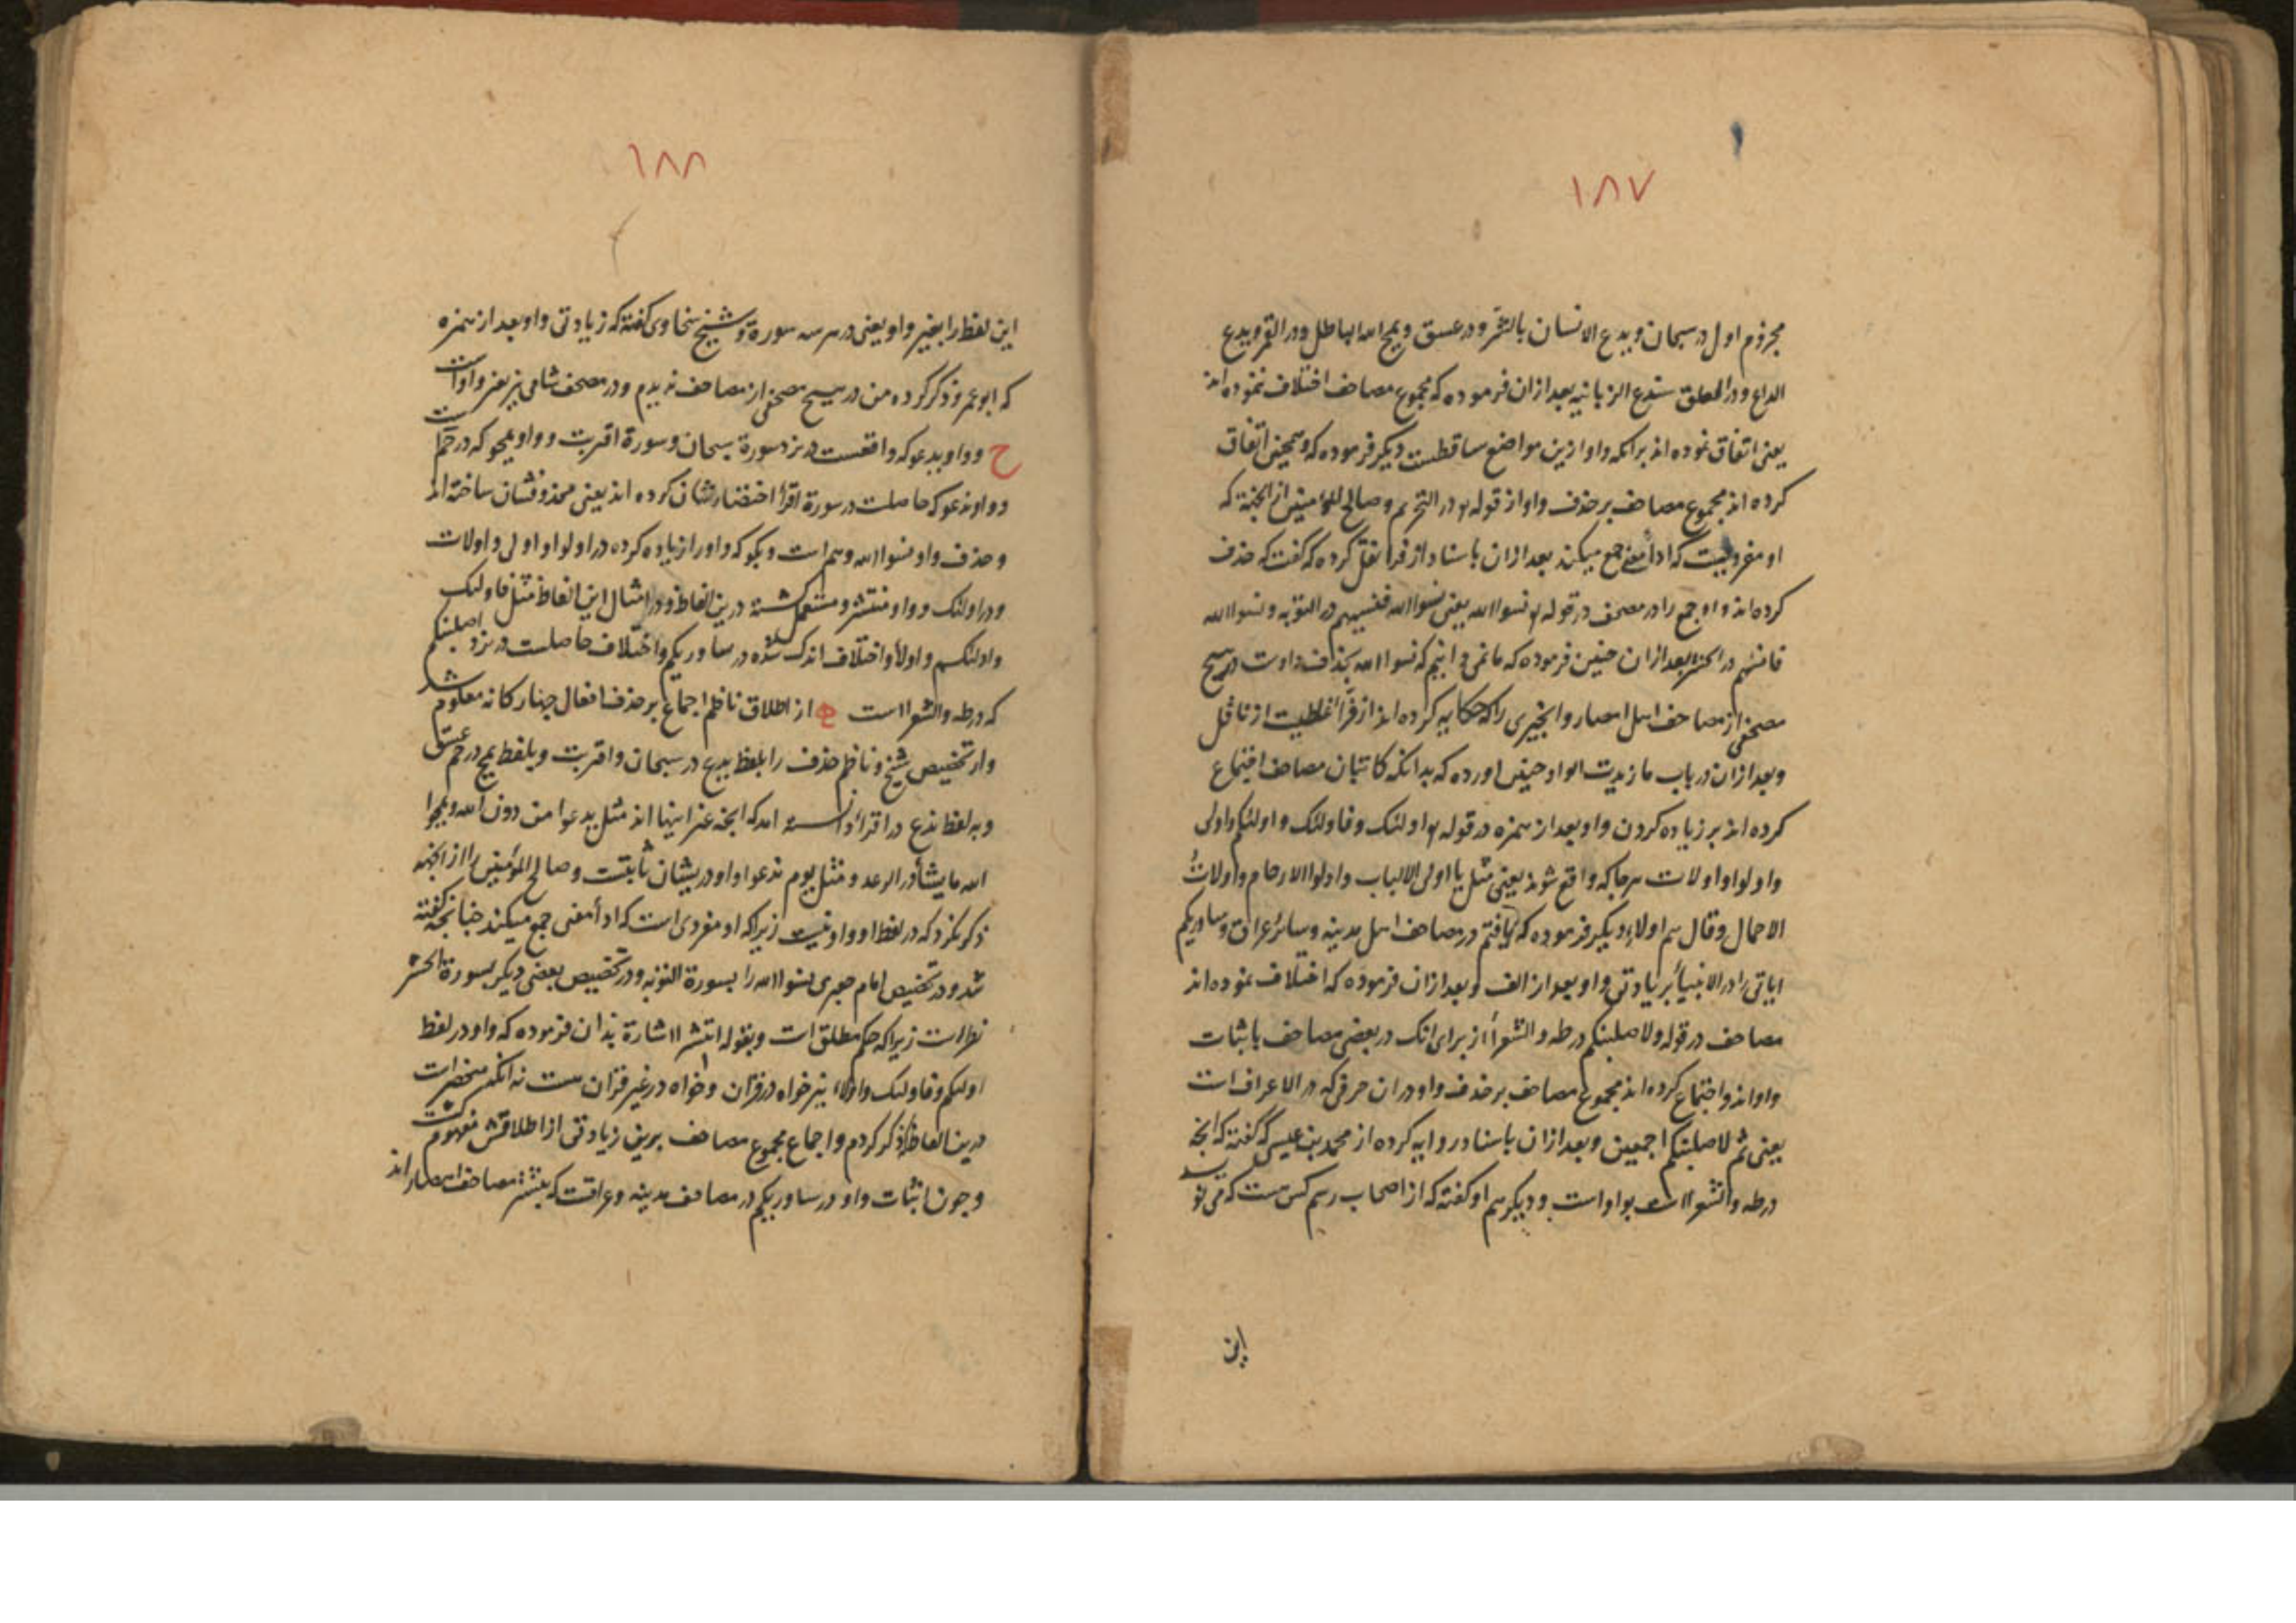 ١٨٧
مجزوم اول در سبحان ویدع الانسان بالشر ودر عسق ویمح الله الباطل ودر القمر ویدع
الداع ودر العلق سندع الزبانیه بعد ازان فرموده که مجموع مصاحف اختلاف ننموده اند
یعنی اتفاق نموده اند برانکه واو ازین مواضع ساقطست دیکر فرموده که وهمچنین اتفاق
کرده اند مجموع مصاحف بر حذف واو از قوله در التحریم وصالح المؤمنین از انجهة که
او مفردیست که ادا معنی جمع میکند بعد ازان باسناد از فرا نقل کرده که گفت که حذف
کرده اند واو جمع را در مصحف در قوله نسوا الله یعنی نسوا الله فنسیهم در التوبه ونسوا الله
فانسهم در الحشر بعد ازان چنین فرموده که ما نمی دانیم که نسوا الله بحذف واوست در هیچ
مصحفی از مصاحف اهل امصار وانچیزی را که حکایه کرده اند از فرّا غلطیست از ناقل
وبعد ازان در باب ما زیدت الواو چنین اورده که بدانکه کاتبان مصاحف اجتماع
کرده اند بر زیاده کردن واو بعد از همزه در قوله اولئک وفاولئک واولئکم واولی
واولوا واولات هرجا که واقع شوند یعنی مثل یا اولی الالباب واولوا الارحام واولاتُ
الاحمال وقال هم اولاء دیکر فرموده که یافتم در مصاحف اهل مدینه وسائر عراق وساوریکم
ایاتی را در الانبیا بزیادتی واو بعد از الف وبعد ازان فرموده که اختلاف نموده اند
مصاحف در قوله ولاصلبنکم در طه والشعرا از برای انک در بعضی مصاحف باثبات
واواند واجتماع کرده اند مجموع مصاحف بر حذف واو دران حرفی که در الاعراف است
یعنی ثم لاصلبنکم اجمعین وبعد ازان باسناد روایه کرده از محمد بن عیسی که گفته که انچه
در طه والشعرا است بواو است ودیکر هم او گفته که از اصحاب رسم کس هست که می نویسد
این
١٨٨
این لفظ را بغیر واو یعنی در هر سه سورة وشیخ سخاوی گفته که زیادتی واو بعد از همزه
که ابو عمرو ذکر کرده من در هیچ مصحفی از مصاحف ندیدم ودر مصحف شامی نیز بغیر واواست
ح وواو یدعو که واقعست در نزد سورة سبحان وسورة اقتربت وواو یمحو که در حم است
وواو ندعو که حاصلست در سورة اقرأ اختصارشان کرده اند یعنی محذوفشان ساخته اند
وحذف واو نسوا الله وهم است وبکو که واو را زیاده کرده در اولوا واولی واولات
ودر اولئک وواو منتشر ومستعمل کشته درین الفاظ ودر امثال این الفاظ مثل فاولئک
واولئکم واولأ واختلاف اندک شده در ساوریکم واختلاف حاصلست در نزد اصلبنکم
که در طه والشعرا است از اطلاق ناظم اجماع بر حذف افعال چهارکانه معلوم شد
واز تخصیص شیخ وناظم حذف را بلفظ یدع در سبحان واقتربت وبلفظ یمح در حم عسق
وبه لفظ ندع در اقرأ دانسته امد که انچه غیر اینها اند مثل یدعوا من دون الله ویمحوا
الله ما یشأ در الرعد ومثل یوم ندعوا واو دریشان ثابتست وصالح المؤمنین را از انجهة
ذکر نکرد که در لفظ او واو نیست زیرا که او مفردی است که ادأ معنی جمع میکند چنانچه گفته
شد ودر تخصیص امام جعبری نسوا الله را بسورة التوبه ودر تخصیص بعضی دیکر بسورة الحشر
نظر است زیرا که حکم مطلق است وبقوله انتشر اشارة بدان فرموده که واو در لفظ
اولئکم وفاولئک واولاء نیز خواه در قرآن وخواه در غیر قرآن هست نه انکه منحصر است
درین الفاظ ذکر کردم واجماع مجموع مصاحف برین زیادتی از اطلاقش مفهوم گشت
وچون اثبات واو در ساوریکم در مصاحف مدینه وعراقست که بیشتر مصاحف امصار اند